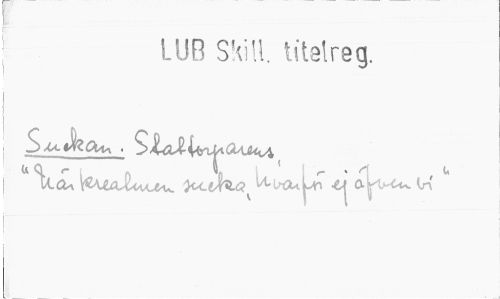 LUB Skill. titelreg.
Suckan. Stattorparens,
"När kreaturen sucka, hvarför ej äfven vi"